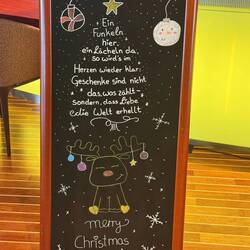 Ein
Funkeln
hier,
ein Lächeln da,
so wird's im
Herzen wieder klar:
Geschenke sind nicht
das, was zählt-
sondern, dass Liebe
die Welt erhellt
merry
Christmas